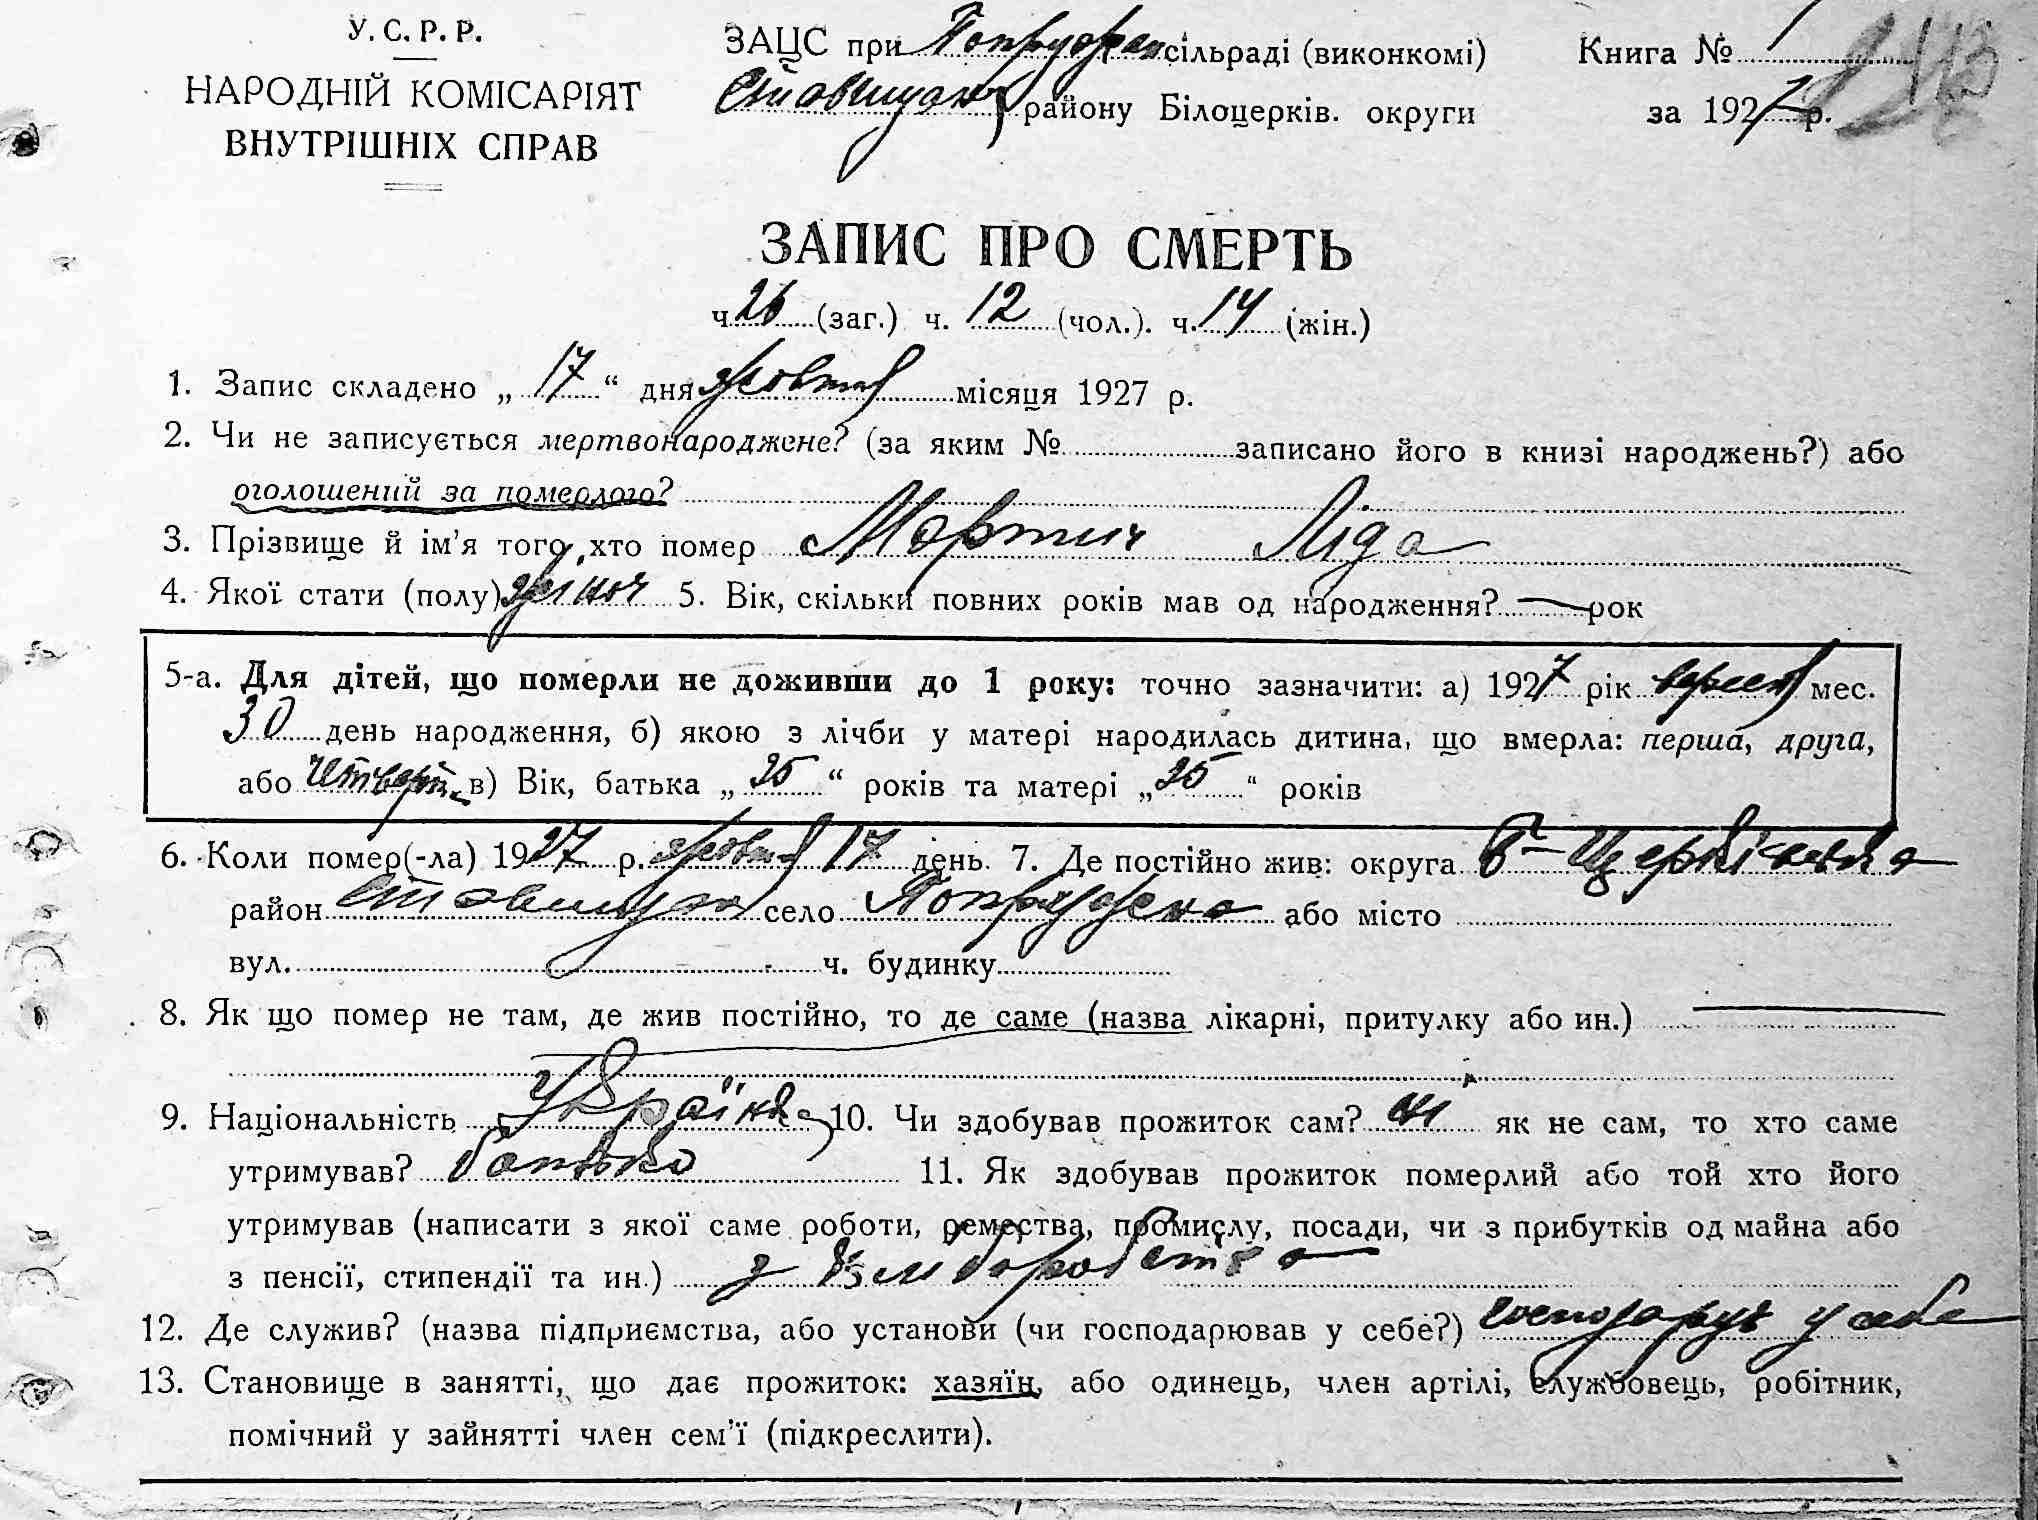 У. С. Р. Р.
НАРОДНІЙ КОМІСАРІЯТ
ВНУТРІШНІХ СПРАВ
ЗАЦС при Попружан сільраді (виконкомі)
Ставищан району Білоцерків. округи
Книга № 1
за 1927 р.
ЗАПИС ПРО СМЕРТЬ
ч. 26 (заг.) ч. 12 (чол.). ч. 14 (жін.)
1. Запис складено „ 17 “ дня жовтня місяця 1927 р.
2. Чи не записується мертвонароджене? (за яким № записано його в книзі народжень?) або
оголошений за померлого?
3. Прізвище й ім’я того, хто помер Мартич Ліда
4. Якої стати (полу) жіноч 5. Вік, скільки повних років мав од народження? — рок
5-а. Для дітей, що померли не доживши до 1 року: точно зазначити: а) 1927 рік вересня мес.
30 день народження, б) якою з лічби у матері народилась дитина, що вмерла: перша, друга,
або в) Вік, батька „ 25 “ років та матері „ 25 “ років
6. Коли помер(-ла) 1927 р. жовтня 17 день. 7. Де постійно жив: округа Б-Церківська
район Ставищан село Попружена або місто
вул. ч. будинку
8. Як що помер не там, де жив постійно, то де саме (назва лікарні, притулку або ин.) —
9. Національність Україн 10. Чи здобував прожиток сам? ні як не сам, то хто саме
утримував? батько 11. Як здобував прожиток померлий або той хто його
утримував (написати з якої саме роботи, ремества, промислу, посади, чи з прибутків од майна або
з пенсії, стипендії та ин.) з
12. Де служив? (назва підприємства, або установи (чи господарював у себе?) господарує у себе
13. Становище в занятті, що дає прожиток: хазяїн, або одинець, член артілі, службовець, робітник,
помічний у зайнятті член сем’ї (підкреслити).